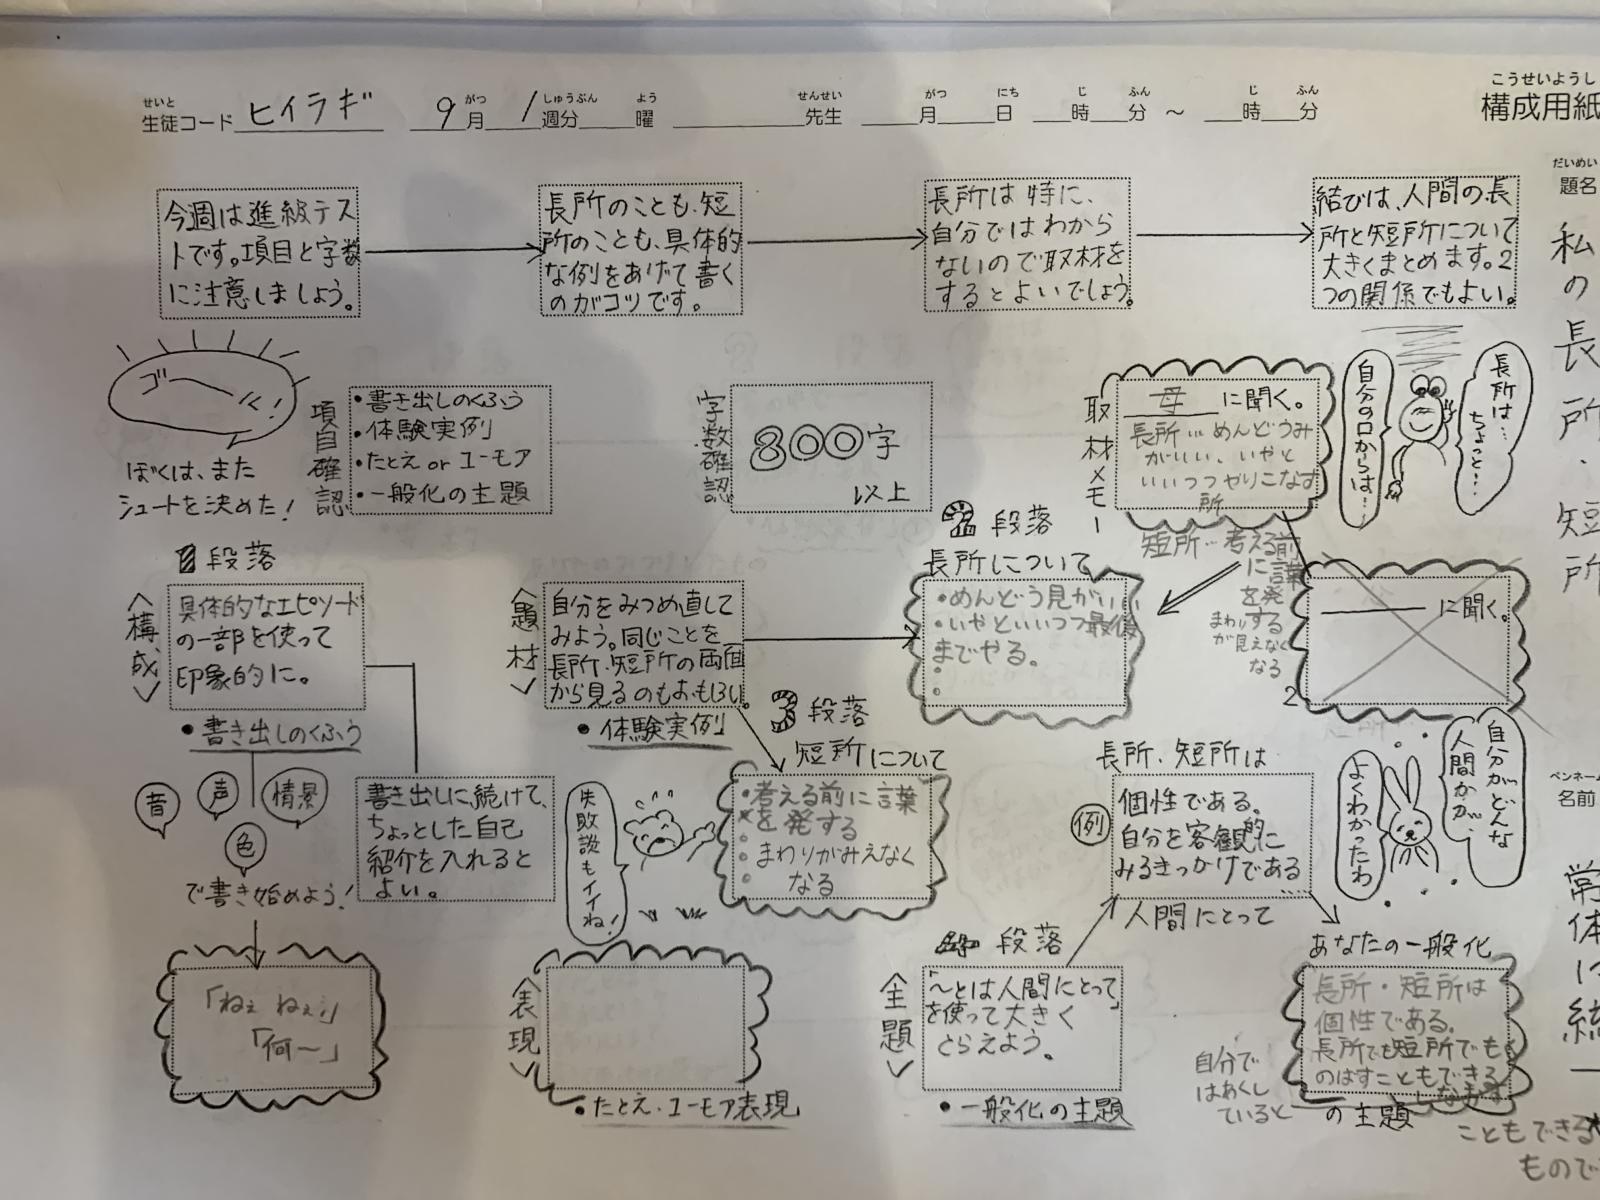 せいと
生徒コード ヒイラギ 9 がつ 月 1 しゅうぶん 週分 よう 曜 せんせい 先生 がつ 月 にち 日 じ 時 ふん 分 ～ じ 時 ふん 分
こうせいようし
構成用紙
今週は進級テス
トです。項目と字数
に注意しましょう。
長所のことも、短
所のことも、具体的
な例をあげて書く
のがコツです。
長所は特に、
自分ではわから
ないので取材を
するとよいでしょう。
結びは、人間の長
所と短所について
大きくまとめます。2
つの関係でもよい。
だいめい
題名
私の長所・短所
ぼくは、また
シュートを決めた!
項目確認
・書き出しのくふう
・体験実例
・たとえ or ユーモア
・一般化の主題
字数確認
800字
以上
取材メモー
母 に聞く。
長所…めんどうみ
がいい、いやと
いいつつやりこなす
所
短所…考える前
に言葉
を発
する
まわり
が見えなく
なる
自分の口からは…
長所は…
ちょっと…
に聞く。
2
1段落
<構成>
具体的なエピソード
の一部を使って
印象的に。
・書き出しのくふう
音
声
情景
色
で書き始めよう!
「ねぇ ねぇ!」
「何〜」
書き出しに続けて、
ちょっとした自己
紹介を入れると
よい。
<題材>
自分をみつめ直して
みよう。同じことを
長所・短所の両面
から見るのもおもしろい。
・体験実例
2段落
長所について
・めんどう見がいい
・いやといいつつ最後
までやる。
3段落
短所について
・考える前に言葉
を発する
まわりがみえなく
なる
失敗談もイイね!
<表現>
・たとえ・ユーモア表現
段落
<主題>
「〜とは人間にとって」
を使って大きく
とらえよう。
・一般化の主題
長所、短所は
例
個性である。
自分を客観的に
みるきっかけである
人間にとって
自分がどんな
人間かが、
よくわかったわ
あなたの一般化
長所・短所は
個性である。
長所でも短所でも
のばすこともできる
の主題
自分で
はあくし
ていると
こともできる
もので
ペンネーム
名前
常体に統一